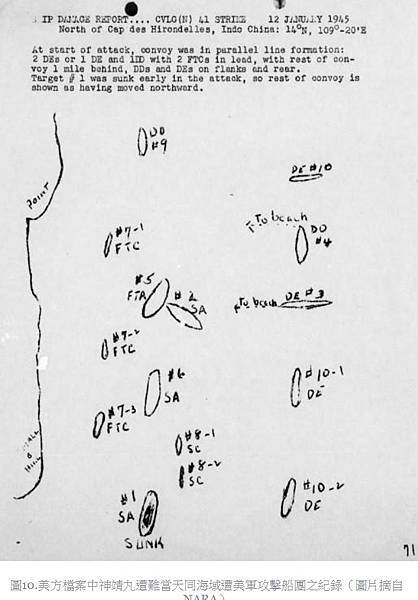 SHIP DAMAGE REPORT.... CVLG(N) 41 STRIKE 12 JANUARY 1945
North of Cap des Hirondelles, Indo China: 14°N, 109°-20'E
At start of attack, convoy was in parallel line formation:
2 DEs or 1 DE and 1DD with 2 FTCs in lead, with rest of con-
voy 1 mile behind, DDs and DEs on flanks and rear.
Target # 1 was sunk early in the attack, so rest of convoy is
shown as having moved northward.
DD
#9
DE #10
POINT
To beach
DD
#4
#7-1
FTC
#5
FTA
#2
SA
To beach
DE #3
#7-2
FTC
#6
SA
#10-1
DE
#7-3
FTC
#8-1
SC
HILL
#8-2
SC
#1
SA
SUNK
#10-2
DE
71
圖10.美方檔案中神靖丸遭難當天同海域遭美軍攻擊船團之紀錄（圖片摘自
NARA）